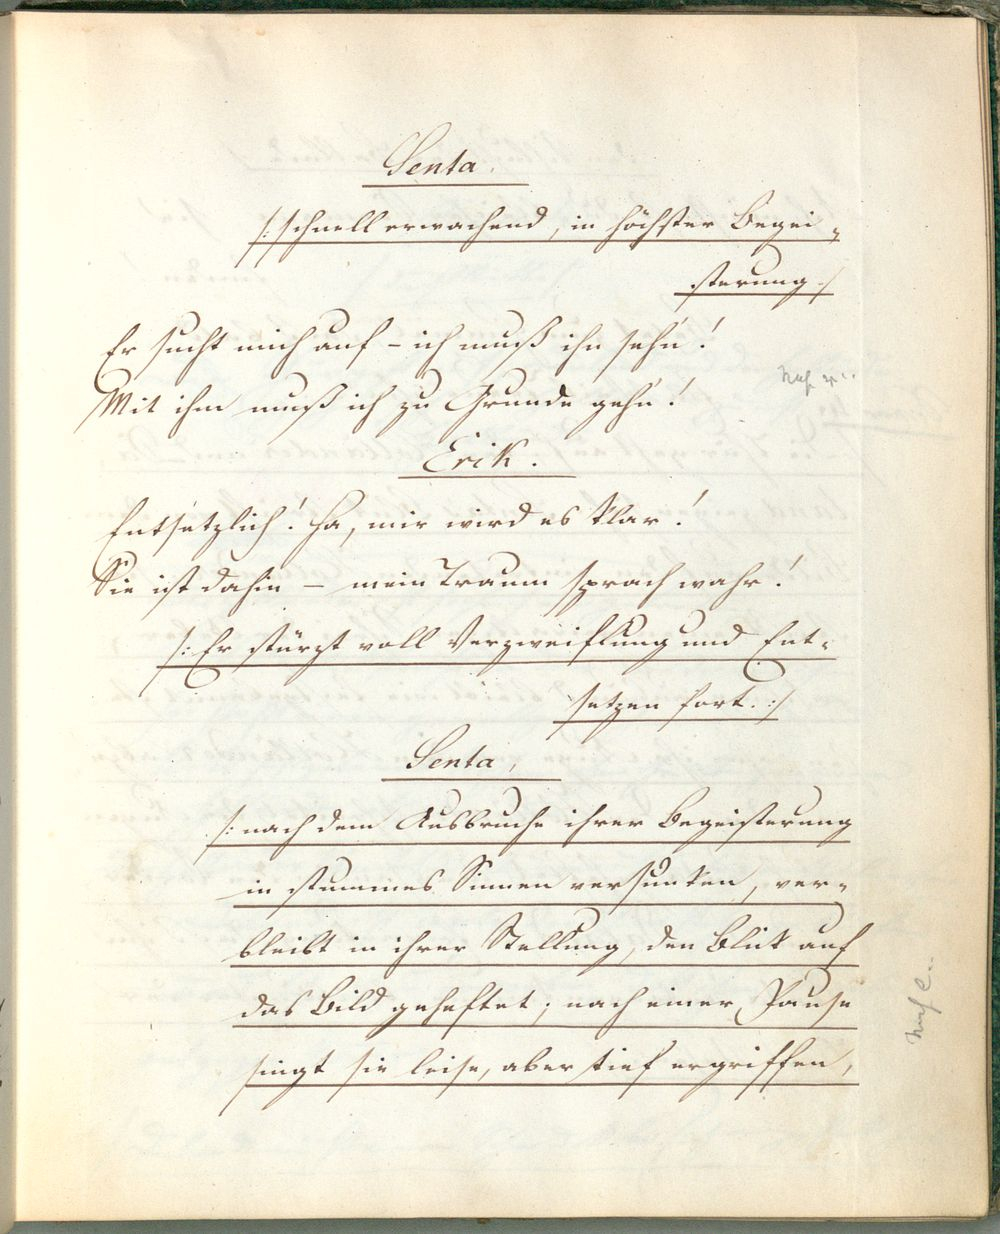 Senta.
/: schnell erwachend, in höchster Begei-
sterung :/
Er sucht mich auf – ich muß ihn sehn'!
Mit ihm muß ich zu Grunde gehn'!
Erik.
Entsetzlich! Ha, mir wird es klar!
Sie ist dahin – mein Traum sprach wahr!
/: Er stürzt voll Verzweiflung und Ent-
setzen fort. :/
Senta,
/: nach dem Ausbruche ihrer Begeisterung
in stummes Sinnen versunken, ver-
bleibt in ihrer Stellung, den Blick auf
das Bild geheftet; nach einer Pause
singt sie leise, aber tief ergriffen,